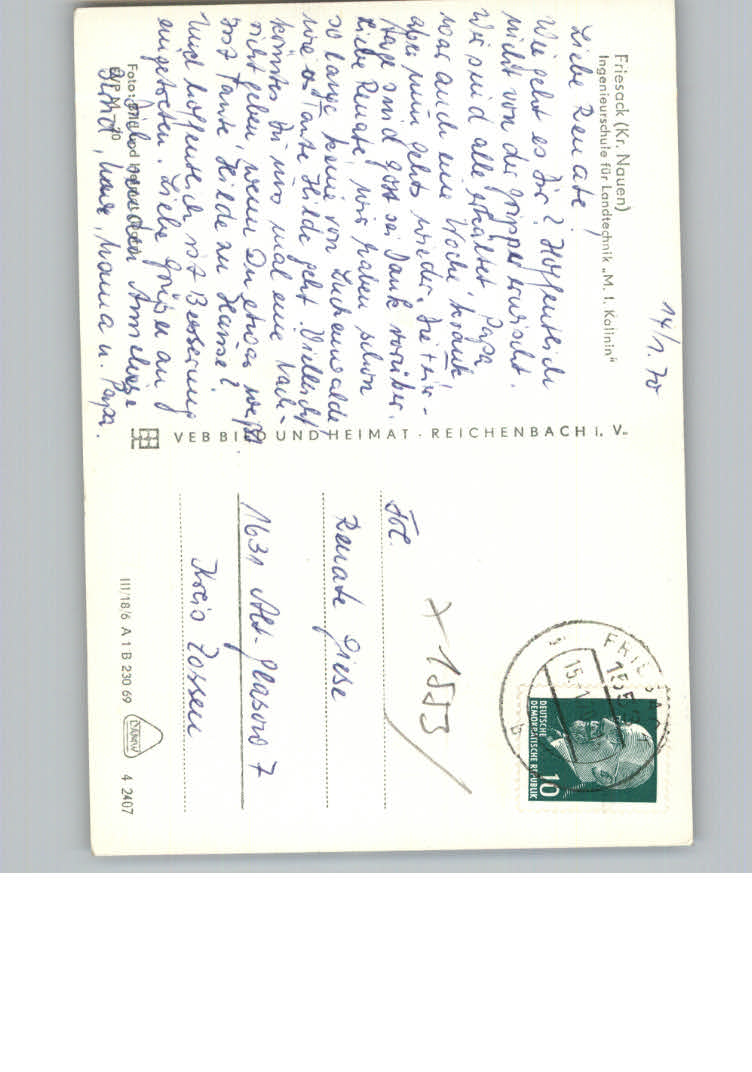 Friesack (Kr. Nauen)
Ingenieurschule für Landtechnik „M. I. Kalinin"
14/1. 70
Liebe Renate!
Wie geht es Dir? Hoffentlich
nicht von der Grippe erwischt.
Wir sind alle erkältet. Papa
war auch eine Woche krank,
aber nun gehts wieder. Die
Tage sind Gott sei Dank vorüber.
Liebe Renate, wir haben schon
so lange keine von Luckenwalde
wie es Tante Hilde geht. Vielleicht
könntest Du uns mal eine Nach-
richt geben, wenn Du etwas weißt
Ist Tante Hilde zu Hause?
Und hoffentlich ist Besserung
eingetreten. Liebe Grüße an
Anneliese
Mama u. Papa.
Foto: Bild und Heimat
VEB BILD UND HEIMAT · REICHENBACH i. V.
Frl.
Renate Giese
1631 Alt-Glasow 7
Kreis Zossen
x 1553
FRIESACK
1553
15.1.
b
DEUTSCHE
DEMOKRATISCHE REPUBLIK
10
III/18/6 A 1 B 230 69
4 2407